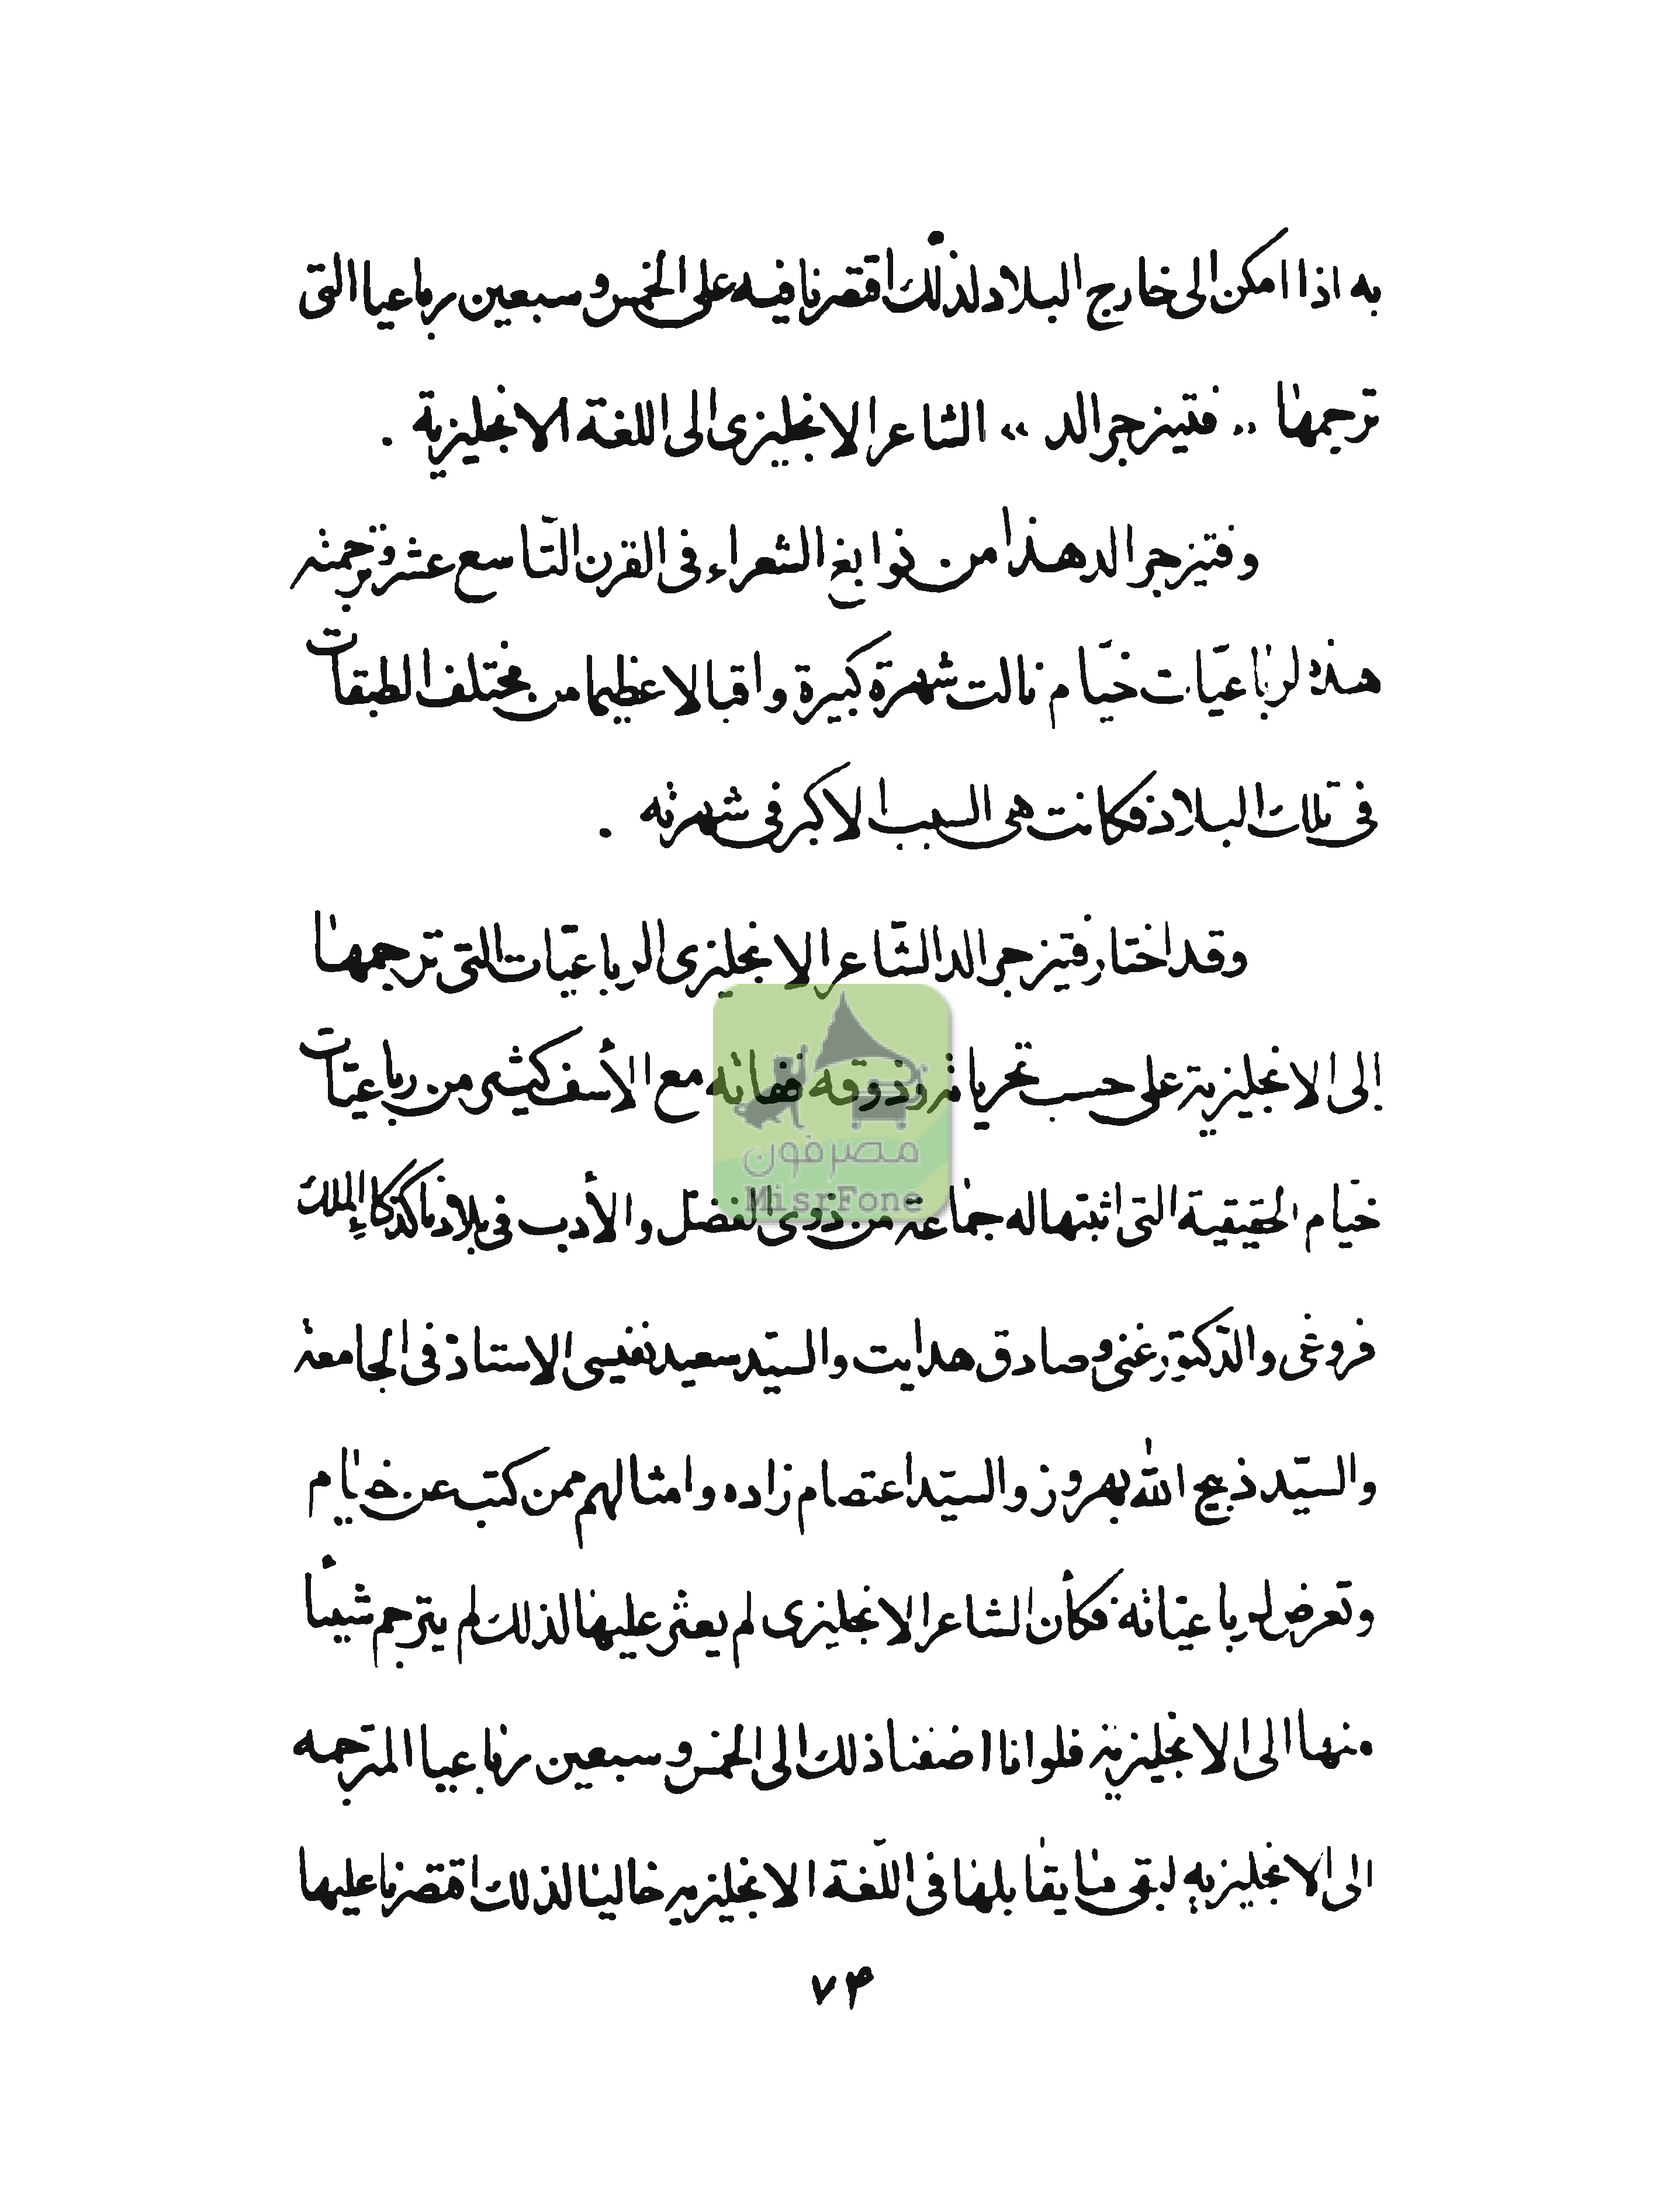 به اذا امكن الى خارج البلاد لذلك اقتصرنا فيه على الخمس و سبعين رباعيا التى
ترجمها ,, فتيزجرالد ,, الشاعر الانجليزى الى اللغة الانجليزية .
وفتيزجرالد هذا من نوابغ الشعراء فى القرن التّاسع عشر وترجمته
هذه لرباعيّات خيّام نالت شهرة كبيرة واقبالا عظيما من مختلف الطبقات
فى تلك البلاد فكانت هى السبب الاكبر فى شهرته .
وقد اختار فتيزجرالد الشّاعر الانجليزى الرباعيّات التى ترجمها
إلى الانجليزية على حسب تحرياته وذوقه ففاته مع الأسف كثير من رباعيّات
خيّام الحقيقية التى اثبتها له جماعة من ذوى الفضل والأدب فى بلادنا كذكاء الملك
فروغى والدّكتور غنى وصادق هدايت والسيّد سعيد نفيسى الاستاذ فى الجامعة
والسيّد ذبيح الله بهروز والسيّد اعتصام زاده وامثالهم ممن كتب عن خيّام
وتعرض لرباعيّاته فكأن الشاعر الانجليزى لم يعثر عليها لذلك لم يترجم شيئاً
منها الى الانجليزية فلو انا اضفنا ذلك الى الخمس و سبعين رباعيا المترجمه
الى الانجليزيه لبقى ما يقابلها فى اللّغة الانجليزيه خاليا لذلك اقتصرنا عليها
۷۴
مصرفون
MisrFone